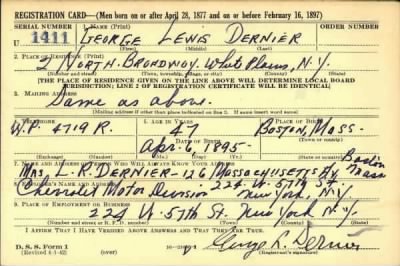 REGISTRATION CARD—(Men born on or after April 28, 1877 and on or before February 16, 1897)
SERIAL NUMBER 1. NAME (Print) ORDER NUMBER
U 1411 GEORGE LEWIS DERNIER
(First) (Middle) (Last)
2. PLACE OF RESIDENCE (Print)
2 NORTH BROADWAY White Plains, N.Y.
(Number and street) (Town, township, village, or city) (County) (State)
[THE PLACE OF RESIDENCE GIVEN ON THE LINE ABOVE WILL DETERMINE LOCAL BOARD
JURISDICTION; LINE 2 OF REGISTRATION CERTIFICATE WILL BE IDENTICAL]
3. MAILING ADDRESS
Same as above.
[Mailing address if other than place indicated on line 2. If same insert word same]
4. TELEPHONE 5. AGE IN YEARS 6. PLACE OF BIRTH
W.P. 4719 R. 47 BOSTON, MASS.
DATE OF BIRTH
Apr. 6, 1895
7. NAME AND ADDRESS OF PERSON WHO WILL ALWAYS KNOW YOUR ADDRESS
MRS L. R. DERNIER - 126 MASSACHUSETTS AV. Boston Mass
8. EMPLOYER'S NAME AND ADDRESS
Chevrolet Motor Division 224 W. 57th St. New York, N.Y.
9. PLACE OF EMPLOYMENT OR BUSINESS
224 W. 57th St. New York N.Y.
(Number and street or R. F. D. number) (Town) (County) (State)
I AFFIRM THAT I HAVE VERIFIED ABOVE ANSWERS AND THAT THEY ARE TRUE.
D. S. S. Form 1
(Revised 4-1-42) George L. Dernier